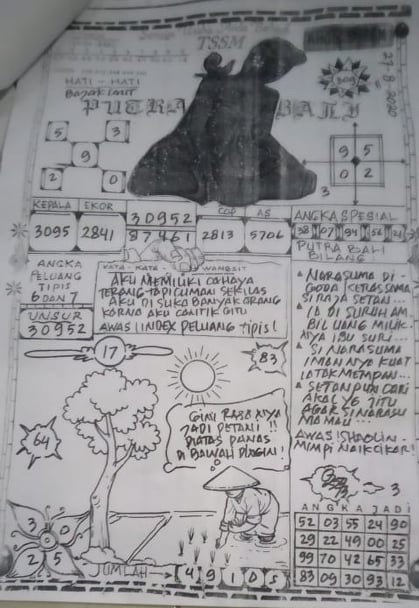 TSSM
27-8-2020
HATI-HATI
BAJAK LAUT
PUTRA BALI
5 3
9
2 0
9 5
0 2
3
KEPALA EKOR
3095 2841
30952
87461
COP AS
2813 5706
ANGKA SPESIAL
PUTRA BALI
BILANG
ANGKA
PELUANG
TIPIS
6 DAN 7
UNSUR
30952
KATA-KATA WANGSIT
AKU MEMILIKI CAHAYA
TERANG TAPI CUMAN SEKILAS
AKU DI SUKA BANYAK ORANG
KARNA AKU CANTIK GITU
AWAS! INDEX PELUANG TIPIS!
NARASUMA DI-
GODA KERASSAMA
SI RAJA SETAN...
IA DI SURUH AM-
BIL UANG MILIK-
NYA IBU SURI...
SI NARASUMA
IMAN NYA KUAT
IA TAK MEMPAN...
SETAN PUN CARI
AKAL YG JITU
AGAR SI NARASU
MA MAU...
AWAS! SHAOLIN-
MIMPI NAIK CIKAR!
17
83
64
GINI RASA NYA
JADI PETANI !!
DIATAS PANAS
DI BAWAH DINGIN!
3 0
9
2 5
3
JUMLAH 4 9 1 0 5
ANGKA JADI
52 03 55 24 90
29 22 49 00 25
99 70 42 65 33
83 09 30 93 12